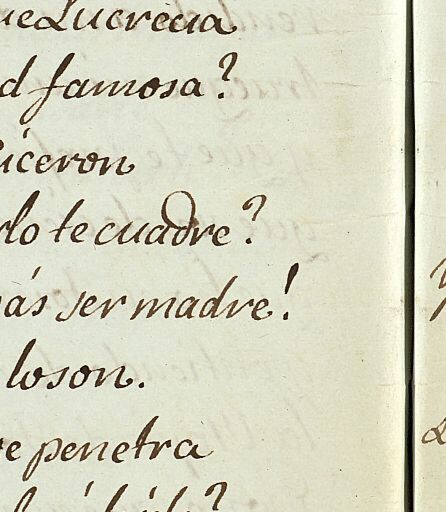 ue Lucrecia
d famosa?
iceron
rlo te cuadre?
ás ser madre!
lo son.
e penetra